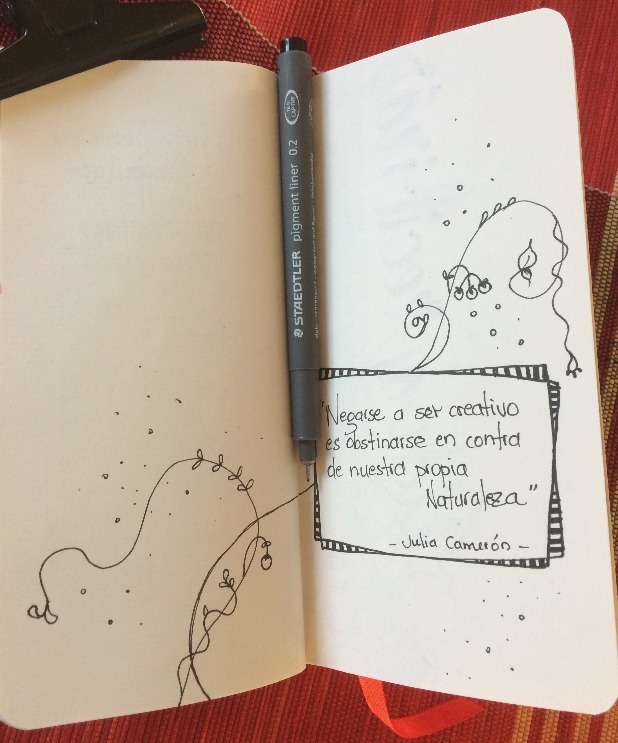 STAEDTLER pigment liner 0.2
"Negarse a ser creativo
es obstinarse en contra
de nuestra propia
Naturaleza"
- Julia Camerón -